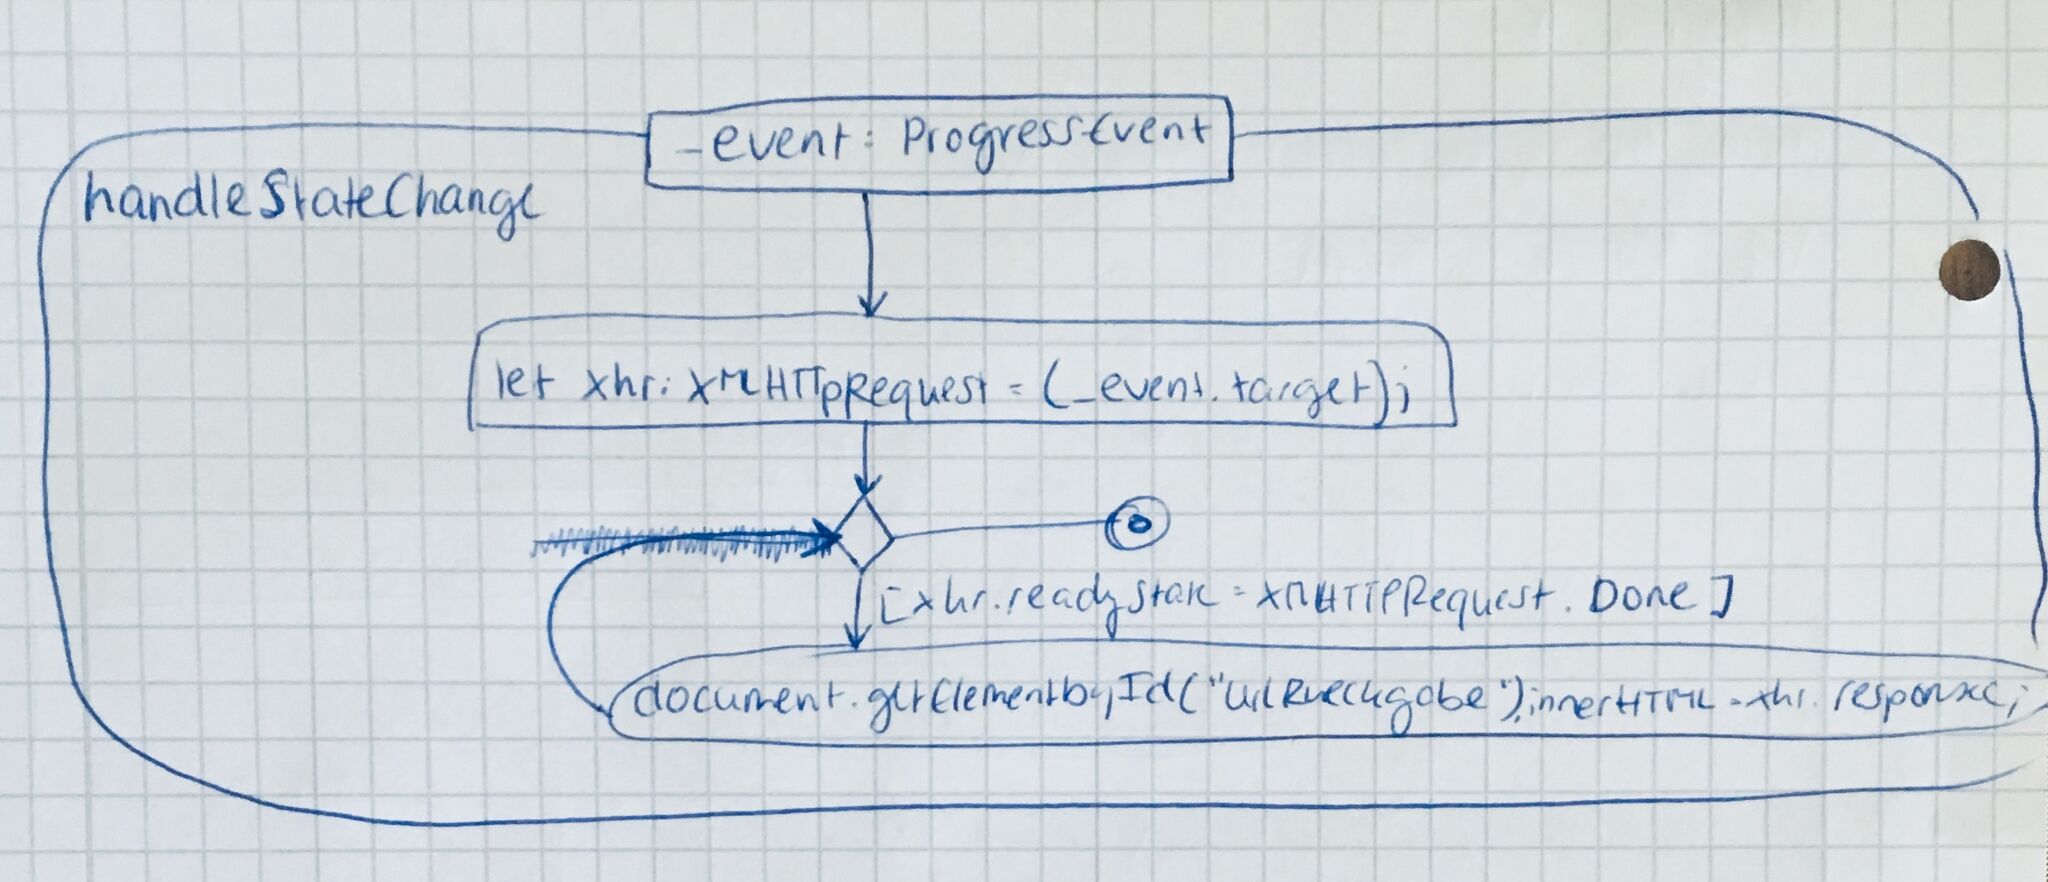 _event: ProgressEvent
handleStateChange
let xhr: XMLHTTpRequest = (_event.target);
[xhr.readyState = XMLHTTPRequest.Done]
document.getElementbyId("").innerHTML = xhr.response;